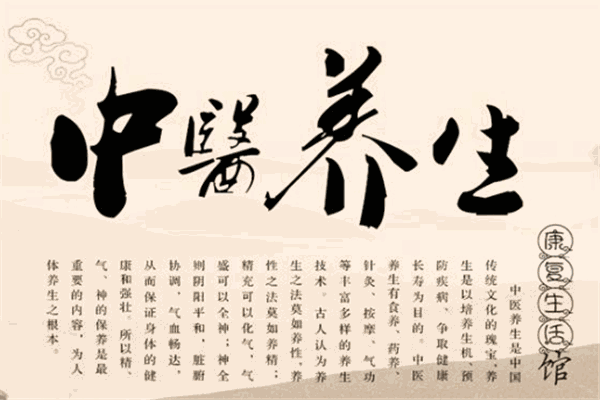 中醫养生
康复生活馆
中医养生是中国
传统文化的瑰宝,养
生是以培养生机、预
防疾病、争取健康
长寿为目的。中医
养生有食养、药养、
针灸、按摩、气功
等丰富多样的养生
技术。古人认为养
生之法莫如养性,养
性之法莫如养精;
精充可以化气,气
盛可以全神;神全
则阴阳平和,脏腑
协调,气血畅达,
从而保证身体的健
康和强壮。所以精、
气、神的保养是最
重要的内容,为人
体养生之根本。